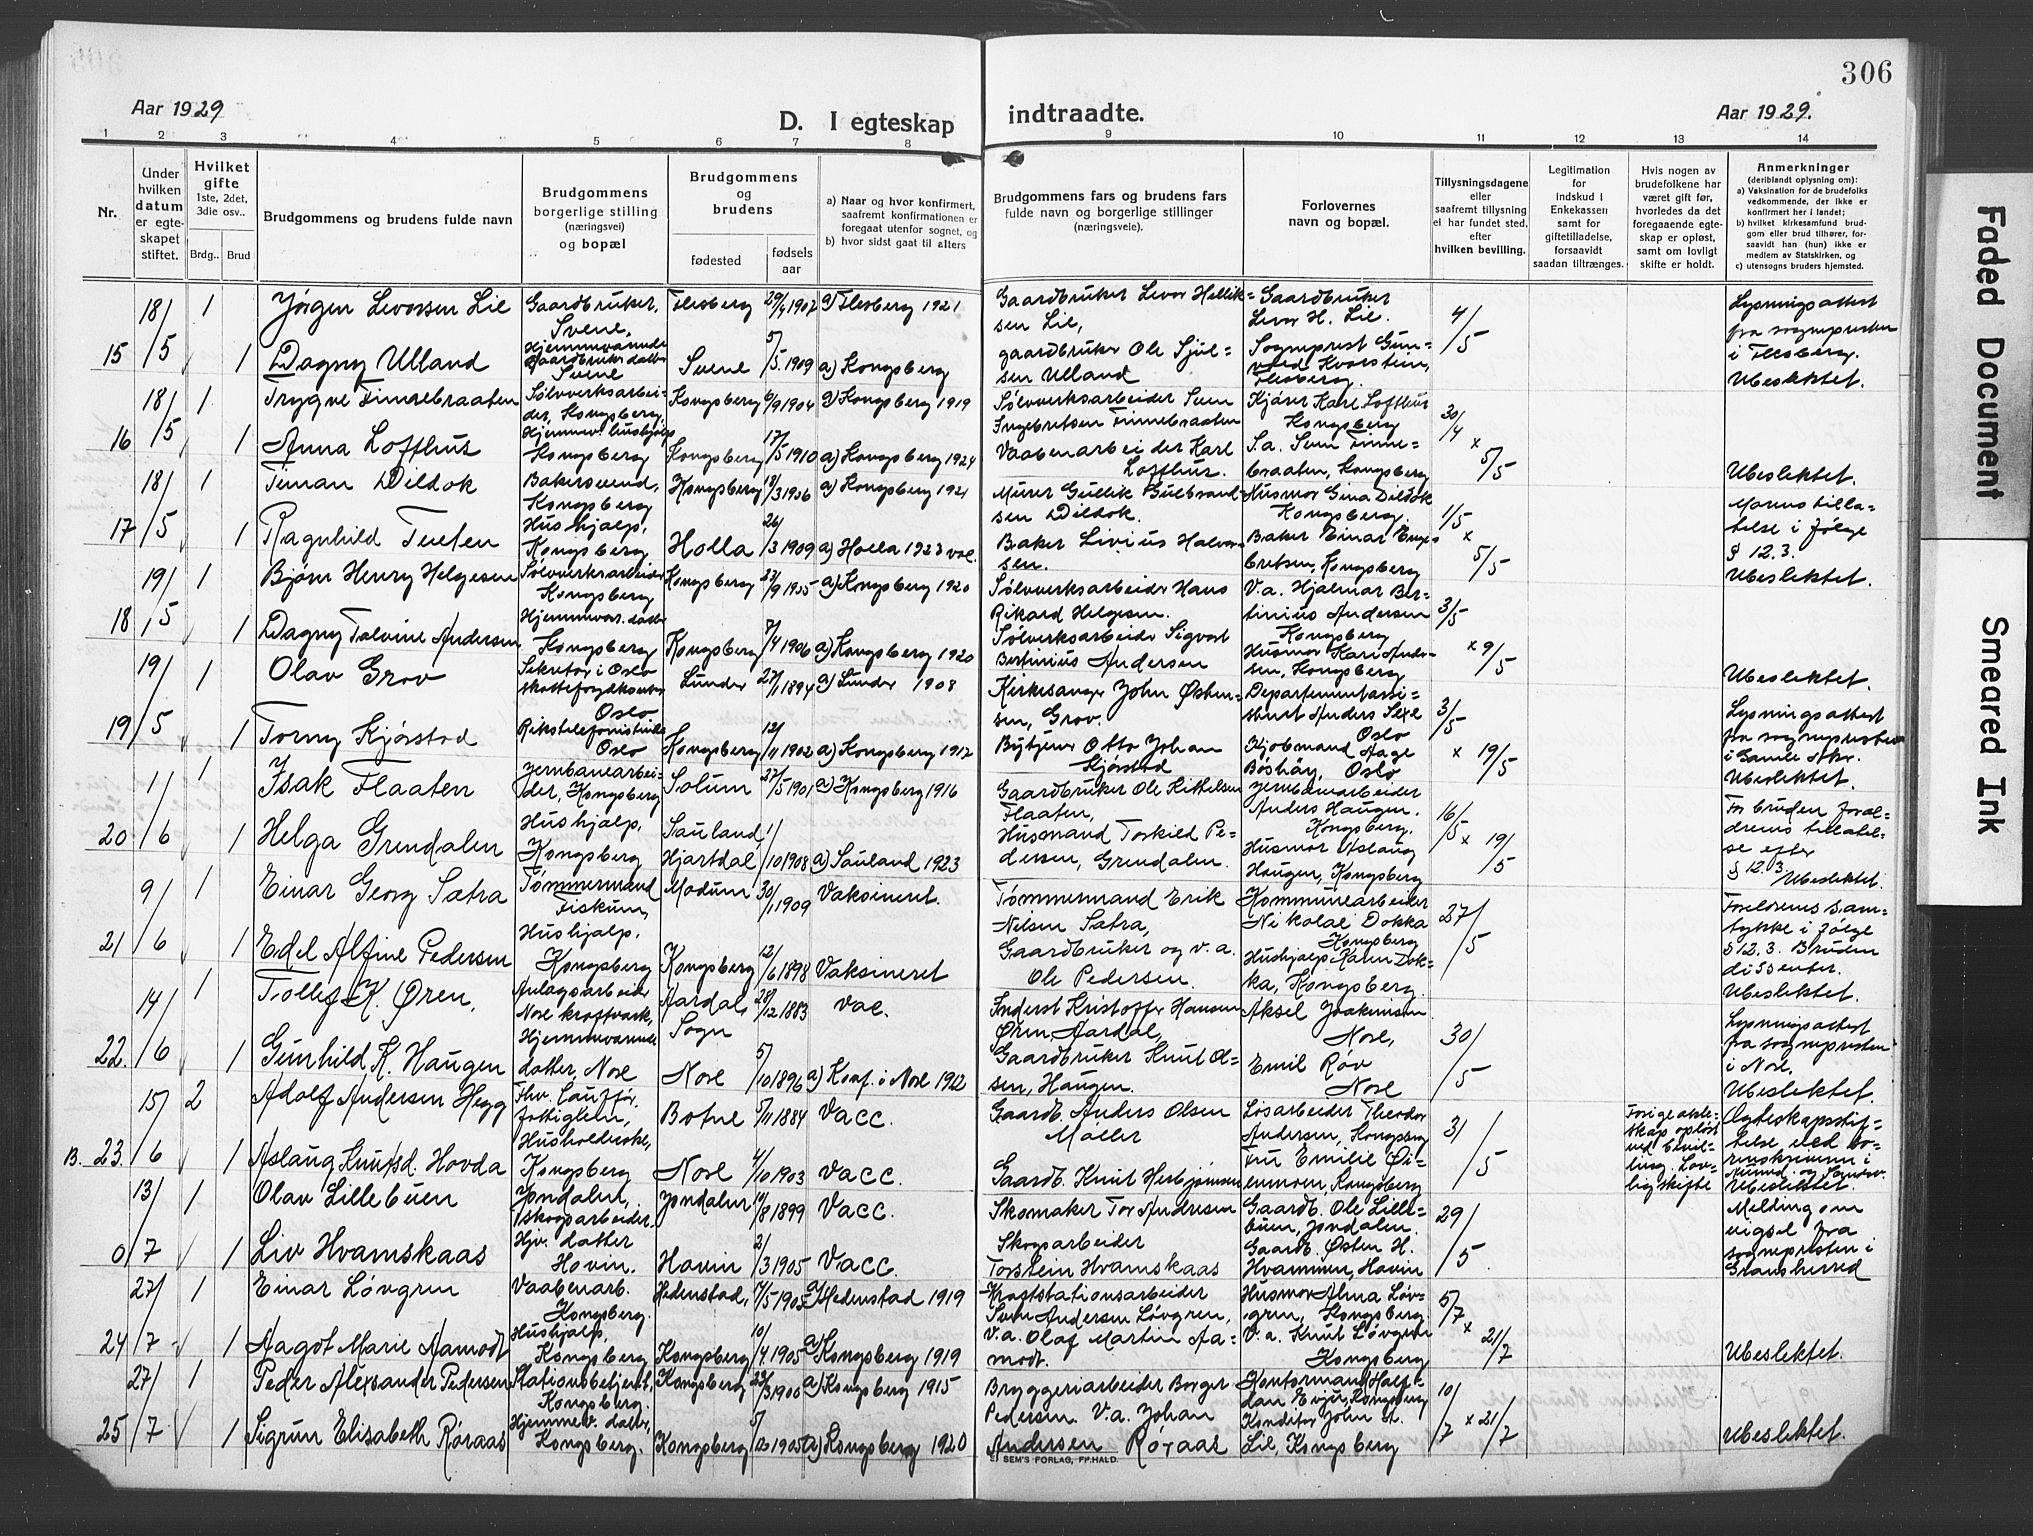 306
Aar 1929
D. I egteskap indtraadte.
Aar 1929.
1 2 3 4 5 6 7 8 9 10 11 12 13 14
Nr.
Under hvilken datum er egteskapet stiftet.
Hvilket gifte 1ste, 2det, 3die osv..
Brdg.. Brud
Brudgommens og brudens fulde navn
Brudgommens borgerlige stilling (næringsvei) og bopæl
Brudgommens og brudens
fødested
fødsels aar
a) Naar og hvor konfirmert, saafremt konfirmationen er foregaat utenfor sognet, og
b) hvor sidst gaat til alters
Brudgommens fars og brudens fars fulde navn og borgerlige stillinger (næringsveie).
Forlovernes navn og bopæl.
Tillysningsdagene eller saafremt tillysning ei har fundet sted, efter hvilken bevilling.
Legitimation for indskud i Enkekassen samt for giftetilladelse, forsaavidt saadan tiltrænges.
Hvis nogen av brudefolkene har været gift før, hvorledes da det foregaaende egteskap er opløst, samt om lovligt skifte er holdt.
Anmerkninger (deriblandt oplysning om):
a) Vaksination for de brudefolks vedkommende, der ikke er konfirmert her i landet;
b) hvilket kirkesamfund brudgom eller brud tilhører, forsaavidt han (hun) ikke er medlem av Statskirken, og
c) utensogns bruders hjemsted.
18/5 1 Jørgen Levorsen Lie Gaardbruker, Svene. Flesberg 29/9 1907 a) Flesberg 1921 Gaardbruker Levor Helliksen Lie, Gaardbruker Levor H. Lie. 4/5 Lysningsattest fra sognepresten i Flesberg.
15 1 Dagny Ulland Hjemmeværende gaardbruker datter Svene Svene 5/5 1909 a) Kongsberg gaardbruker Ole Sjulsen Ulland Sogneprest Kvarstein, Flesberg. Ubeslektet.
18/5 1 Trygve Finnebraaten Sølvverksarbeider, Kongsberg Kongsberg 6/9 1904 a) Kongsberg 1919 Sølvverksarbeider Sven Ingebretsen Finnebraaten Kjører Karl Lofthus Kongsberg 30/4 x 5/5
16 1 Anna Lofthus Hjemmev. hushjelp Kongsberg Kongsberg 17/5 1910 a) Kongsberg 1924 Vaabenarbeider Karl Lofthus. S.a. Sven Finnebraaten, Kongsberg Ubeslektet.
18/5 1 Timan Dildok Bakersvend, Kongsberg Kongsberg a) Kongsberg 1921 Murer Gullik Gulbrandsen Dildok. Husmor Gina Dildok Kongsberg. 1/5 x 5/5
17 1 Ragnhild Tveten Hushjælp, Kongsberg Holla 26/3 1909 a) Holla 1923 vac. Baker Livius Halvorsen. Baker Einar Engebretsen, Kongsberg i følge § 12.3. Ubeslektet.
19/5 1 Bjørn Henry Helgesen Sølvverksarbeider Kongsberg Kongsberg a) Kongsberg 1920 Sølvverksarbeider Hans Rikard Helgesen. V.a. Hjalmar Bertinius Andersen Kongsberg 3/5 x 9/5
18 1 Dagny Talvine Andersen Hjemmevær. datter Kongsberg Kongsberg 8/4 1906 a) Kongsberg 1920 Sølvverksarbeider Sigvart Bertinius Andersen Husmor Kari Andersen, Kongsberg Ubeslektet.
19/5 1 Olav Grov Sekretær i Oslo skattefogdkontor Oslo Lunder 27/1 1894 a) Lunder 1908 Kirkesanger John Østensen, Grov. Anders Oslo 3/5 x 19/5 Lysningsattest fra sognepresten i Gamle Aker.
19 1 Torny Kjørstad Rikstelefonistinde Oslo Kongsberg 12/11 1902 a) Kongsberg 1917 Bytjener Otto Johan Kjørstad Kjøbmand Aage Oslo Ubeslektet.
1/6 1 Isak Flaaten Jernbanearbeider, Kongsberg Solum 27/5 1901 a) Kongsberg 1916 Gaardbruker Ole Kittelsen Flaaten, Jernbanearbeider Anders Haugen. Kongsberg. 16/5 x 19/5 For bruden forældrenes tilladelse efter § 12.3. Ubeslektet.
20 1 Helga Grendalen Hushjælp, Kongsberg Sauland Hjartdal 1/10 1908 a) Sauland 1923 Husmand Torkild Pedersen, Grendalen. Husmor Aslaug Haugen, Kongsberg
9/6 1 Einar Georg Sætra Tømmermand Fiskum, Modum 30/1 1909 Vaksineret. Tømmermand Erik Nilsen Sætra, Kommunearbeider Nikolai Dokka Kongsberg 27/5 Foreldrenes samtykke i følge § 12.3. Bruden dissenter. Ubeslektet.
21 1 Edel Alfine Pedersen Hushjælp. Kongsberg Kongsberg 12/6 1898 Vaksineret Gaardbruker og v.a. Ole Pedersen. Hushjælp Karen Dokka, Kongsberg.
14/6 1 Tollef K. Øren, Anlagsarbeider Nore kraftverk, Aardal, Sogn 28/12 1883 vac. Inderst Kristoffer Hansen Øren, Aardal, Aksel Joakimsen Nore, 30/5 Lysningsattest fra sognepresten i Nore. Ubeslektet.
22. 1 Gunhild K. Haugen Hjemmeværende datter Nore Nore 5/10 1896 a) Konf. i Nore 1912 Gaardbruker Knut Olsen, Haugen. Emil Røv Nore
15/6 2 Adolf Andersen Hegg Botne 5/11 1884 Vacc. Gaardb. Anders Olsen Møller Løsarbeider Theodor Andersen, Kongsberg 31/5
B. 23. 1 Aslaug Knutsd. Hovda Husholderske, Kongsberg Nore 4/10 1903 Vacc. Gaardb. Knut Herbjørnsen Fru Emilie Kongsberg Forige ekteskap opløst ved bevilling. Lovlig skifte Egteskapsstiftelse ved sorenskriveren i Numed. og Sandsv. Ubeslektet.
13/7 1 Olav Lillebuen Jondalen, Skogsarbeider. Jondalen 19/8 1899 Vacc. Skomaker Tor Andresen Gaardb. Ole Lillebuen, Jondalen 29/5 Melding om vigsel fra sognepresten i Gransherred
0 1 Liv Hvamskaas Hjv. datter Hovin. Hovin 2/3 1905 Vacc. Skogsarbeider Torstein Hvamskaas Gaardb. Østen H. Hvammen, Hovin
27/7 1 Einar Løvgren Vaabenarb. Kongsberg. Hedenstad, 17/5 1905 a) Hedenstad 1919 Kraftstationsarbeider Sven Andersen Løvgren, Husmor Alma Løvgren, Kongsberg 5/7 x 21/7
24 1 Aagot Marie Aamodt Hushjælp, Kongsberg Kongsberg 10/4 1905 a) Kongsberg 1919 V.a. Olaf Martin Aamodt. V.a. Knut Løvgren Kongsberg Ubeslektet.
27/7 1 Peder Alexander Pedersen Stationsbetjent, Kongsberg. Kongsberg 23/3 1900 a) Kongsberg 1915 Bryggeriarbeider Borger Pedersen Kontormand Halfdan Evju, Kongsberg 10/7 x 21/7
25 1 Sigrun Elisabeth Røraas Hjemmev. datter, Kongsberg. Kongsberg 5/12 1905 a) Kongsberg 1920 V.a. Johan Andersen Røraas Konditor John A. Lie, Kongsberg Ubeslektet.
SEM'S FORLAG, FR.HALD.
Faded Document
Smeared Ink